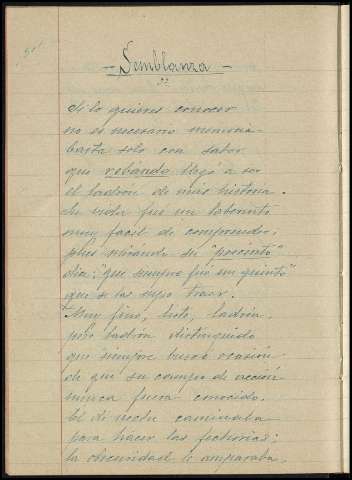 - Semblanza -
Si lo quieres conocer
no es necesario memoria
basta solo con saber
que robando llegó a ser
el ladrón de más historia.
Su vida fué un laberinto
muy facil de comprender,
pues mirando su "precinto"
dia: "que siempre fué un quinto"
que se las supo traer.
Muy fino, listo, ladrón,
pero ladrón distinguido
que siempre buscó ocasión
de que su campo de acción
nunca fuera conocido.
El de noche caminaba
para hacer las fechorias;
la obscuridad le amparaba.